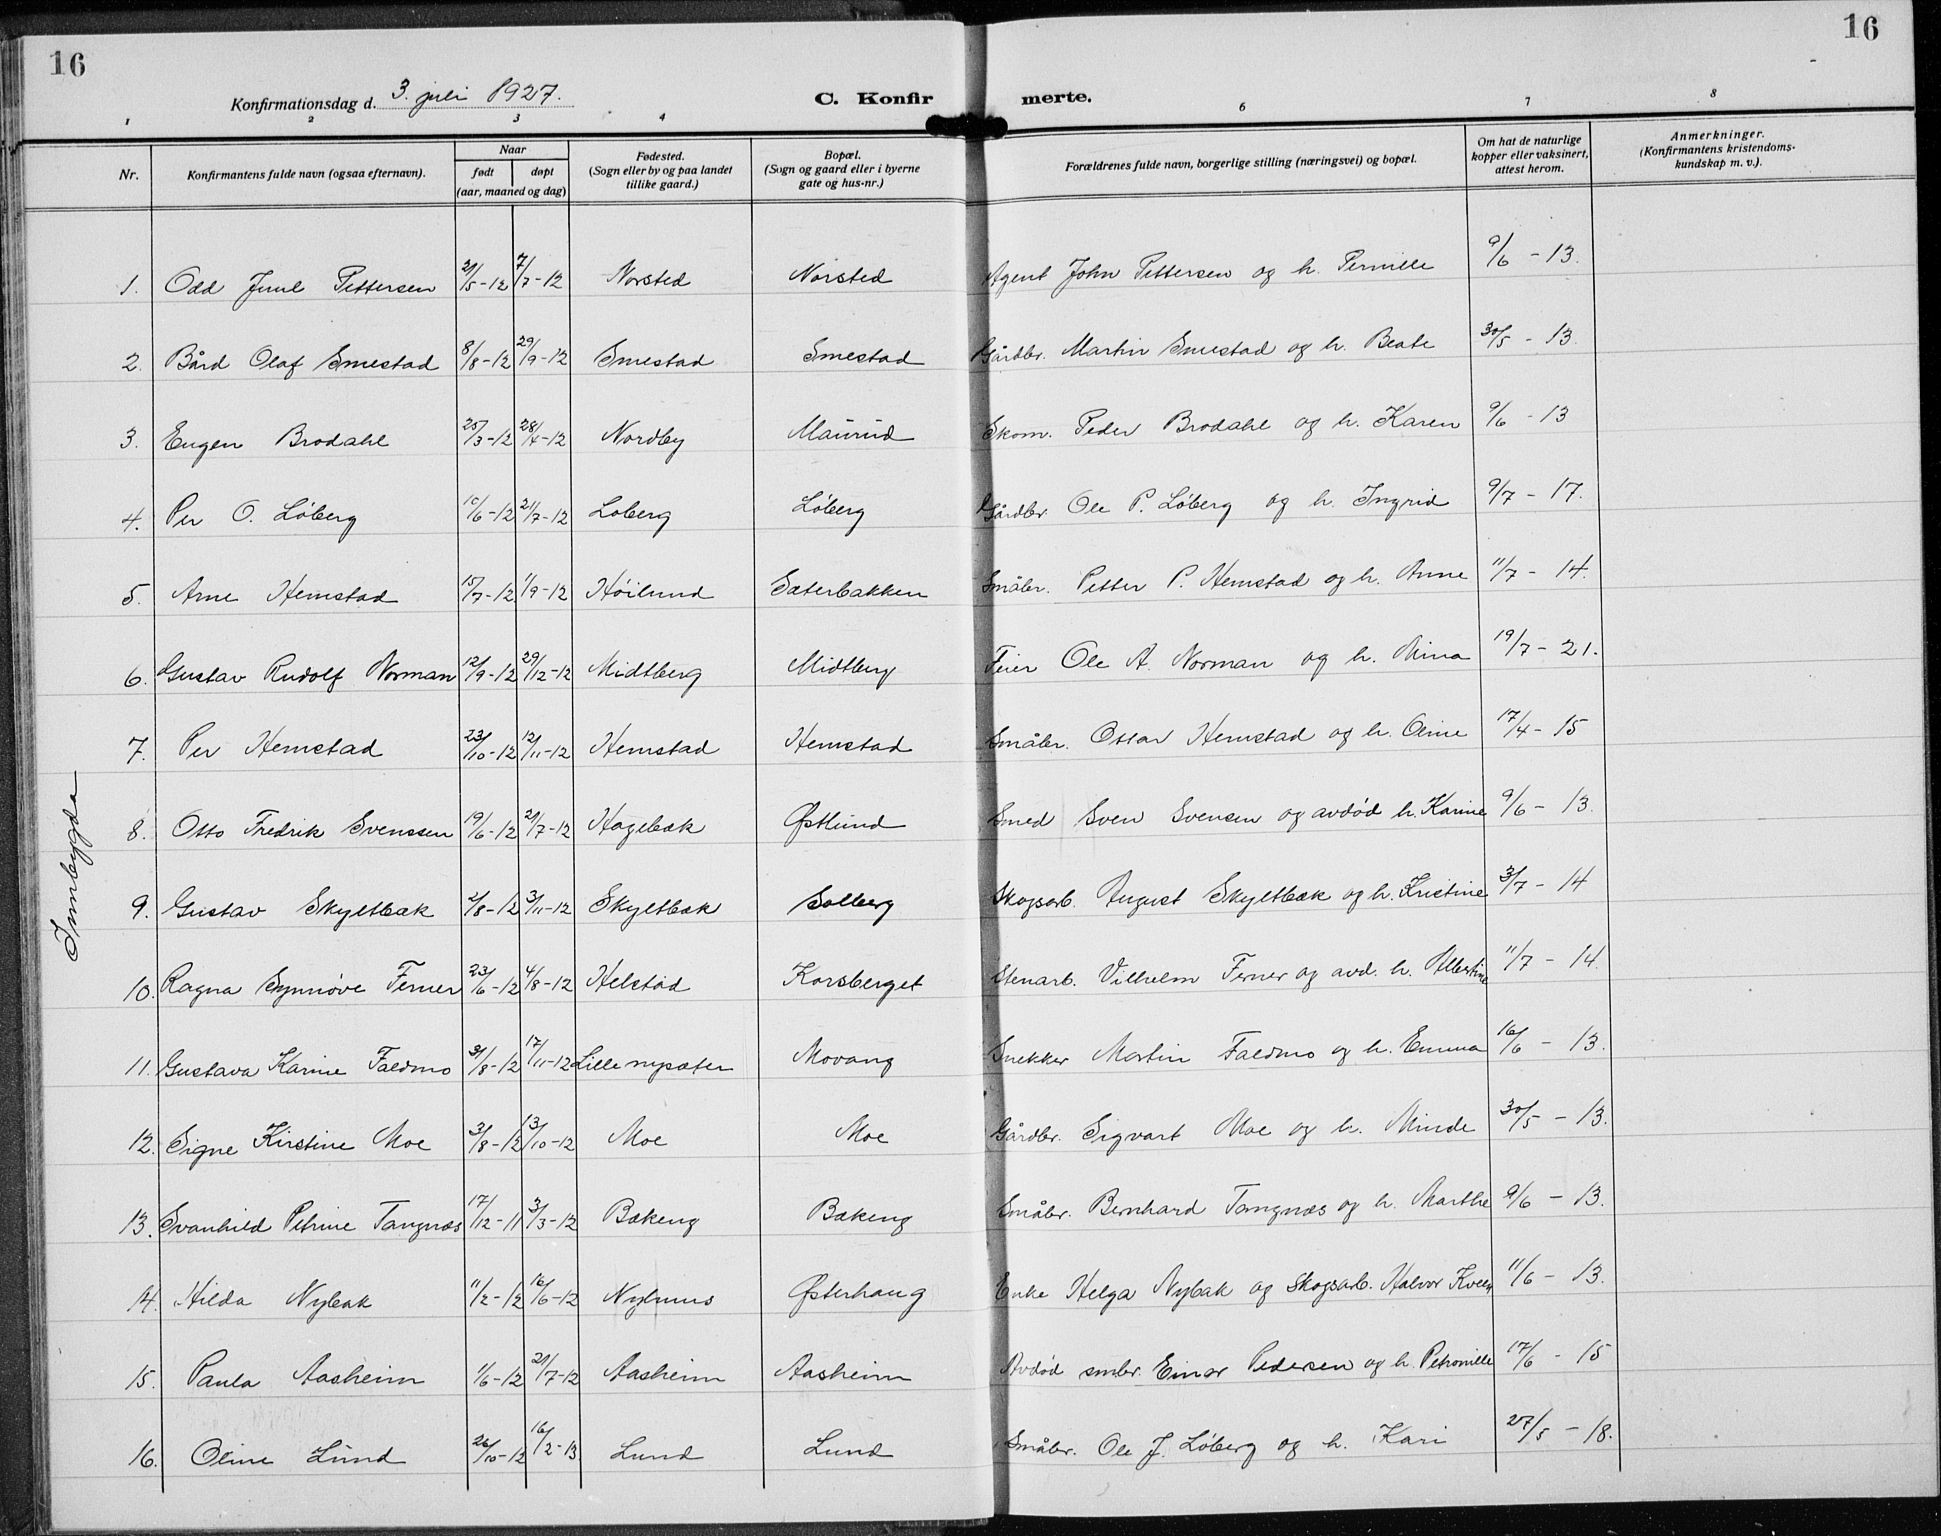 16
16
Konfirmationsdag d. 3. juli 1927.
C. Konfirmerte.
1 2 3 4 6 7 8
Nr.
Konfirmantens fulde navn (ogsaa efternavn).
Naar
født døpt
(aar, maaned og dag)
Fødested.
(Sogn eller by og paa landet
tillike gaard.)
Bopæl.
(Sogn og gaard eller i byerne
gate og hus-nr.)
Forældrenes fulde navn, borgerlige stilling (næringsvei) og bopæl.
Om hat de naturlige
kopper eller vaksinert,
attest herom.
Anmerkninger.
(Konfirmantens kristendoms-
kundskap m. v.).
1. Odd Juul Pettersen 21/5-12 7/7-12 Norsted Norsted Agent John Pettersen og h. Pernille 9/6 - 13.
2. Bård Olaf Smestad 8/8-12 29/9-12 Smestad Smestad Gårdbr. Martin Smestad og h. Beate 30/5 - 13.
3. Eugen Brodahl 25/3-12 28/4-12 Nordby Maurud Skom. Peder Brodahl og h. Karen 9/6 - 13
4. Per O. Löberg 10/6-12 21/7-12 Loberg Löberg Gårdbr. Ole P. Löberg og h. Ingrid 9/7 - 17.
5. Arne Hemstad 15/7-12 1/9-12 Höilund Sæterbakken Småbr. Petter P. Hemstad og h. Anne 11/7 - 14.
6. Gustav Rudolf Norman 12/9-12 29/12-12 Midtberg Midtberg Feier Ole A. Norman og h. Nina 19/7 - 21.
7. Per Hemstad 23/10-12 12/11-12 Hemstad Hemstad Småbr. Ottar Hemstad og h. Oline 17/4 - 15
Innbygda
8. Otto Fredrik Svenssen 19/6-12 21/7-12 Hagebæk Østlund Smed Sven Svensen og avdød h. Karine 9/6 - 13.
9. Gustav Skyltbæk 2/8-12 3/11-12 Skyltbæk Solberg Skogsarb. August Skyltbæk og h. Kristine 3/7 - 14
10. Ragna Synnöve Ferner 23/6-12 4/8-12 Helstad Korsberget Stenarb. Vilhelm Ferner og avd. h. Albertine 11/7 - 14.
11. Gustava Karine Faldmo 31/8-12 17/11-12 Lille nysæter Movang Snekker Martin Faldmo og h. Emma 16/6 - 13.
12. Signe Kirstine Moe 31/8-12 13/10-12 Moe Moe Gårdbr. Sigvart Moe og h. Minde 30/5 - 13.
13. Svanhild Petrine Tangnæs 17/12-11 3/3-12 Bækeng Bækeng Småbr. Bernhard Tangnæs og h. Marthe 9/6 - 13.
14. Hilda Nybak 11/2-12 16/6-12 Nylunns Østerhaug Enke Helga Nybak og Skogsarb. Halvor Kveen 11/6 - 13.
15. Paula Aasheim 1/6-12 21/7-12 Aasheim Aasheim Avdød smbr. Einar Pedersen og h. Petronille 17/6 - 15
16. Oline Lund 26/10-12 16/2-13 Lund Lund Småbr. Ole J. Löberg og h. Kari 27/5 - 18.